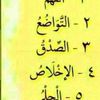 ٢ - التَّوَاضُعُ
٣ - الصِّدْقُ
٤ - الإِخْلَاصُ
٥ - الْحِلْمُ